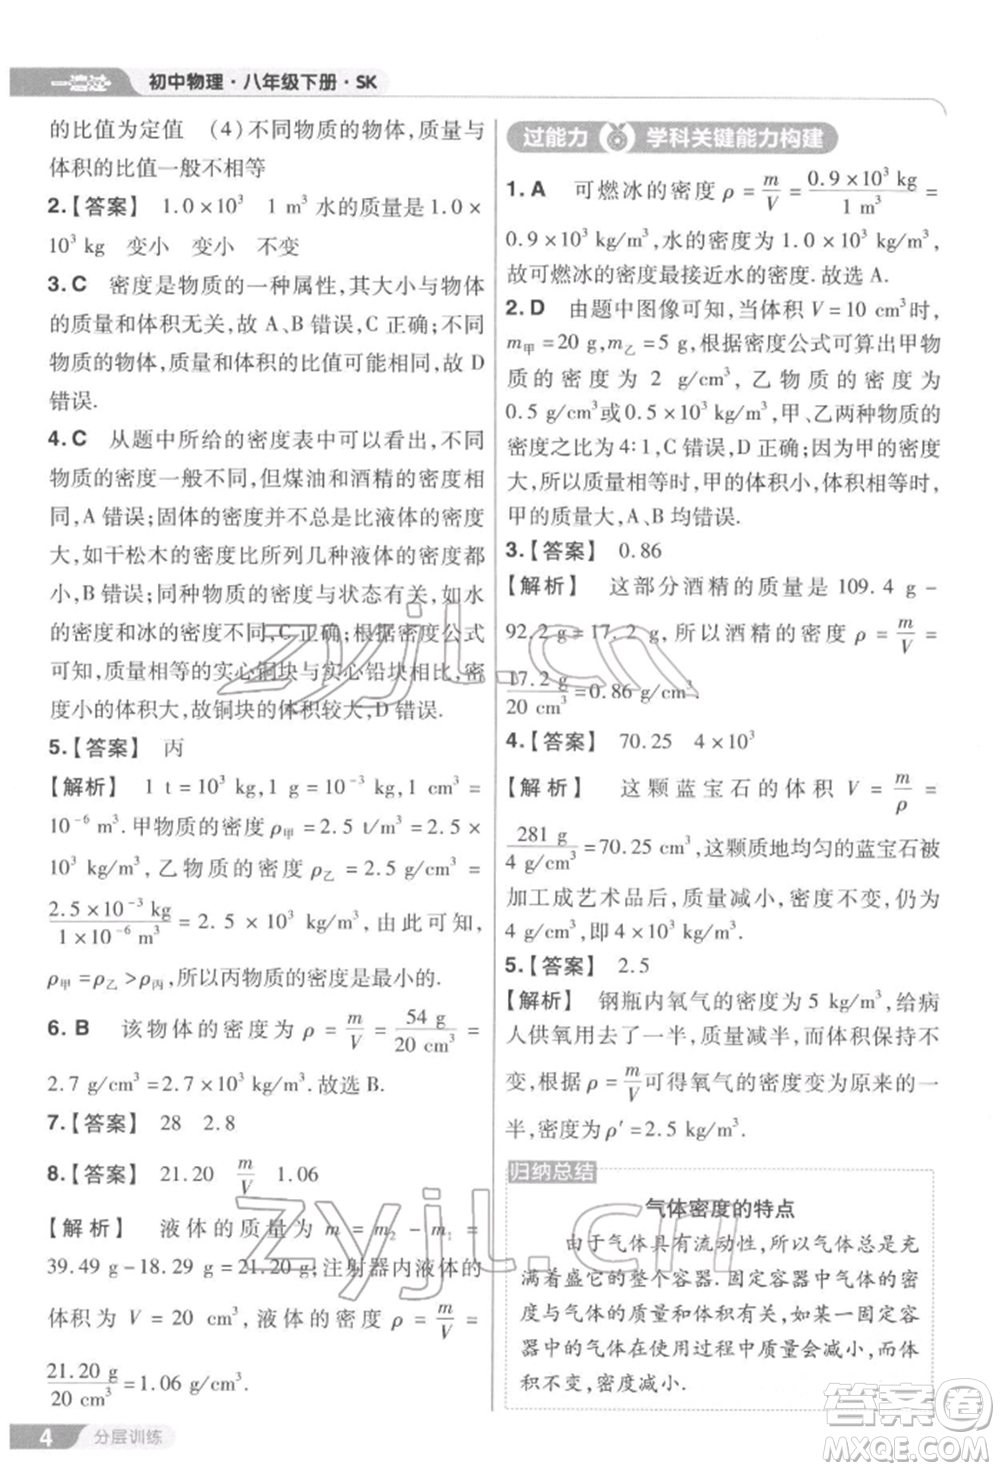 一遍过 初中物理·八年级下册·SK
的比值为定值 (4)不同物质的物体,质量与
体积的比值一般不相等
2.【答案】 1.0×10³ 1 m³ 水的质量是 1.0×
10³ kg 变小 变小 不变
3. C 密度是物质的一种属性,其大小与物体
的质量和体积无关,故 A、B 错误,C 正确;不同
物质的物体,质量和体积的比值可能相同,故 D
错误.
4. C 从题中所给的密度表中可以看出,不同
物质的密度一般不同,但煤油和酒精的密度相
同,A 错误;固体的密度并不总是比液体的密度
大,如干松木的密度比所列几种液体的密度都
小,B 错误;同种物质的密度与状态有关,如水
的密度和冰的密度不同,C 正确;根据密度公式
可知,质量相等的实心铜块与实心铅块相比,密
度小的体积大,故铜块的体积较大,D 错误.
5.【答案】 丙
【解析】 1 t=10³ kg,1 g=10⁻³ kg,1 cm³=
10⁻⁶ m³. 甲物质的密度 ρ甲=2.5 t/m³=2.5×
10³ kg/m³,乙物质的密度 ρ乙=2.5 g/cm³=
2.5×10⁻³ kg/1×10⁻⁶ m³=2.5×10³ kg/m³,由此可知,
ρ甲=ρ乙>ρ丙,所以丙物质的密度是最小的.
6. B 该物体的密度为 ρ=m/V=54 g/20 cm³=
2.7 g/cm³=2.7×10³ kg/m³. 故选 B.
7.【答案】 28 2.8
8.【答案】 21.20 m/V 1.06
【解析】 液体的质量为 m=m₂-m₁=
39.49 g-18.29 g=21.20 g;注射器内液体的
体积为 V=20 cm³,液体的密度 ρ=m/V=
21.20 g/20 cm³=1.06 g/cm³.
4 分层训练
过能力 学科关键能力构建
1. A 可燃冰的密度 ρ=m/V=0.9×10³ kg/1 m³=
0.9×10³ kg/m³,水的密度为 1.0×10³ kg/m³,
故可燃冰的密度最接近水的密度. 故选 A.
2. D 由题中图像可知,当体积 V=10 cm³时,
m甲=20 g,m乙=5 g;根据密度公式可算出甲物
质的密度为 2 g/cm³,乙物质的密度为
0.5 g/cm³或0.5×10³ kg/m³,甲、乙两种物质的
密度之比为 4∶1,C 错误,D 正确;因为甲的密度
大,所以质量相等时,甲的体积小,体积相等时,
甲的质量大,A、B 均错误.
3.【答案】 0.86
【解析】 这部分酒精的质量是 109.4 g-
92.2 g=17.2 g,所以酒精的密度 ρ=m/V=
17.2 g/20 cm³=0.86 g/cm³.
4.【答案】 70.25 4×10³
【解析】 这颗蓝宝石的体积 V=m/ρ=
281 g/4 g/cm³=70.25 cm³;这颗质地均匀的蓝宝石被
加工成艺术品后,质量减小,密度不变,仍为
4 g/cm³,即4×10³ kg/m³.
5.【答案】 2.5
【解析】 钢瓶内氧气的密度为 5 kg/m³,给病
人供氧用去了一半,质量减半,而体积保持不
变,根据 ρ=m/V可得氧气的密度变为原来的一
半,密度为 ρ′=2.5 kg/m³.
归纳总结
气体密度的特点
由于气体具有流动性,所以气体总是充
满着盛它的整个容器. 固定容器中气体的密
度与气体的质量和体积有关,如某一固定容
器中的气体在使用过程中质量减小,而体
积不变,密度减小.
zyjl.cn
zyjl.cn
答案圈
MXQE.COM